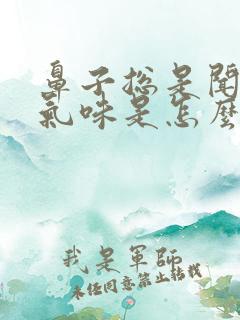 鼻子総是聞
氣味是怎麼
我是軍師
未经同意禁止转载